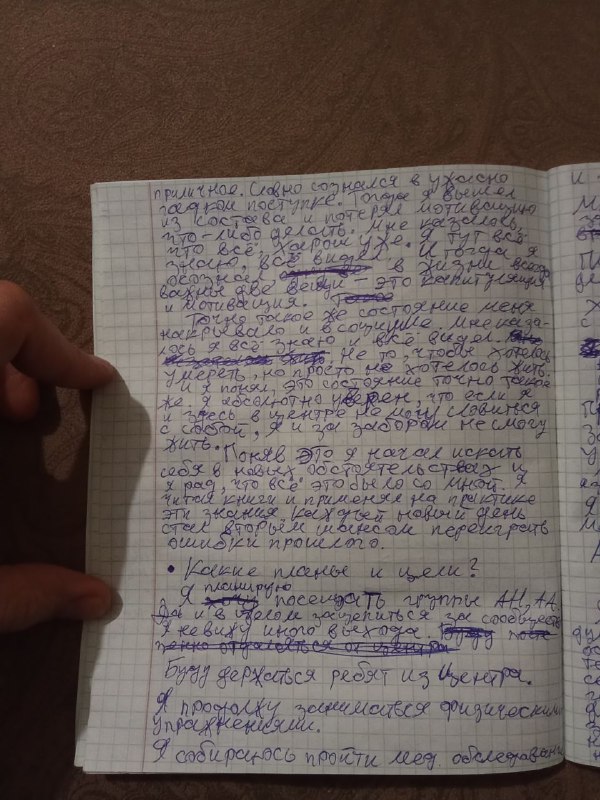 приличное. Словно сознался в ужасно
гадком поступке. Тогда я вышел
из состава и потерял мотивацию
что-либо делать. Мне казалось,
что всё, хорош уже. Я тут всё
знаю, всё видел. И тогда я
осознал, в жизни всегда
важны две вещи – это капитуляция
и мотивация.
Точно такое же состояние меня
накрывало и в социуме. Мне каза-
лось я всё знаю и всё видел.
Не то, чтобы хотелось
умереть, но просто не хотелось жить.
И я понял, это состояние точно такое
же. Я абсолютно уверен, что если я
и здесь в центре не могу словиться
с собой, я и за забором не смогу
жить.
Поняв это я начал искать
себя в новых обстоятельствах и
я рад, что всё это было со мной. Я
читал книги и применял на практике
эти знания. Каждый новый день
стал вторым шансом переиграть
ошибки прошлого.
• Какие планы и цели?
Я планирую посещать группы АН, АА,
да и в целом зацепиться за сообщест
Я не вижу иного выхода.
Буду держаться ребят из Центра.
Я продолжу заниматься физическими
упражнениями.
Я собираюсь пройти мед. обследовани